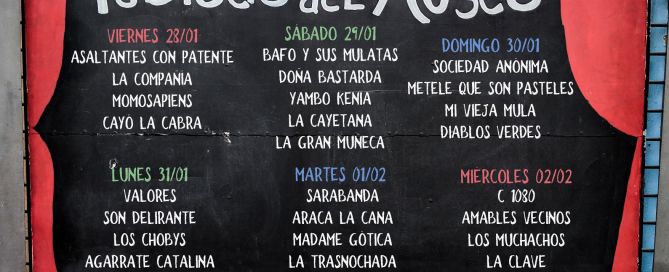 Tablado del Museo
VIERNES 28/01
ASALTANTES CON PATENTE
LA COMPAÑIA
MOMOSAPIENS
CAYO LA CABRA
SÁBADO 29/01
BAFO Y SUS MULATAS
DOÑA BASTARDA
YAMBO KENIA
LA CAYETANA
LA GRAN MUÑECA
DOMINGO 30/01
SOCIEDAD ANÓNIMA
METELE QUE SON PASTELES
MI VIEJA MULA
DIABLOS VERDES
LUNES 31/01
VALORES
SON DELIRANTE
LOS CHOBYS
AGARRATE CATALINA
MARTES 01/02
SARABANDA
ARACA LA CANA
MADAME GÓTICA
LA TRASNOCHADA
MIÉRCOLES 02/02
C 1080
AMABLES VECINOS
LOS MUCHACHOS
LA CLAVE